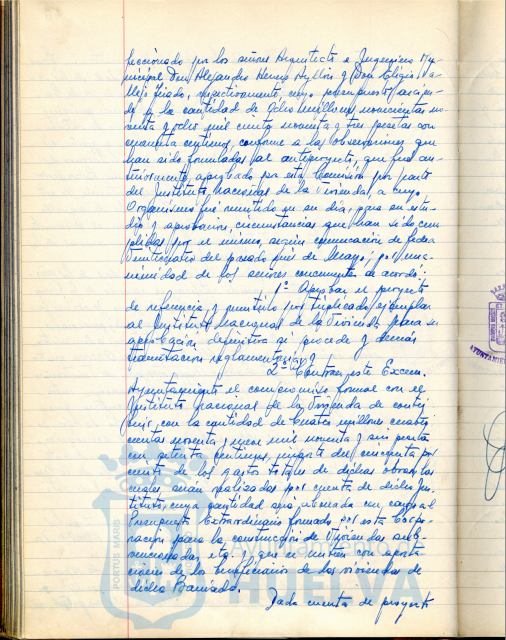 feccionado por los señores Arquitecto e Ingeniero Mu-
nicipal Don Alejandro Herrero Ayllón y Don Eligio Va-
llejo Fajado, respectivamente, cuyo presupuesto ascien-
de a la cantidad de ocho millones novecientas no-
venta y ocho mil ciento noventa y tres pesetas con
cuarenta centimos, conforme a las observaciones que
han sido formuladas al anteproyecto, que fué an-
teriormente aprobado por esta Comisión por parte
del Instituto Nacional de la Vivienda, a cuyo
Organismo fué remitido en su día, para su estu-
dio y aprobación, circunstancias que han sido cum-
plidas por el mismo, según comunicación de fecha
veinticuatro del pasado mes de Mayo; por una-
nimidad de los señores concurrentes se acordó:
1º Aprobar el proyecto
de referencia, y remitirlo por triplicado ejemplar
al Instituto Nacional de la Vivienda para su
aprobación definitiva si procede y demás
tramitación reglamentaria; y
2º Contraer este Excmo.
Ayuntamiento el compromiso formal con el
Instituto Nacional de la Vivienda de contri-
buir, con la cantidad de cuatro millones cuatro-
cientas noventa y nueve mil noventa y seis pesetas
con setenta centimos, importe del cincuenta por
ciento de los gastos totales de dichas obras, las
cuales serán realizadas por cuenta de dicho Ins-
tituto, cuya cantidad será abonada con cargo al
Presupuesto Extraordinario formado por esta Corpo-
ración para la construcción de Viviendas sub-
vencionadas, etc. y que se nutren con aporta-
ciones de los beneficiarios de las viviendas de
dicha Barriada.
Dada cuenta de proyecto
PORTUS MARIS
HUELVA